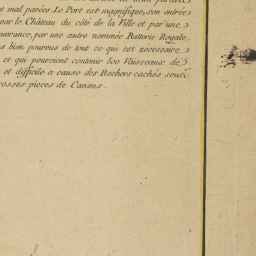 t mal parées. Le Port est magnifique, son entrée
par le Château du côte de la Ville et par une
nairance, par une autre nommée Batterie Royale,
s bien pourvus de tout ce qui est necessaire
et qui pourroient contenir 600 Vaisseaux de
et difficile a cause des Rochers cachés sous
rosses pieces de Canons.